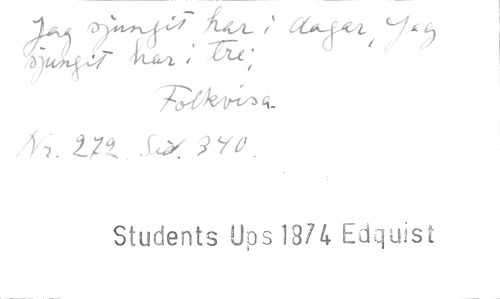 Jag sjungit har i dagar, Jag
sjungit har i tre;
Folkvisa.
Nr. 272. Sid. 340.
Students Ups 1874 Edquist